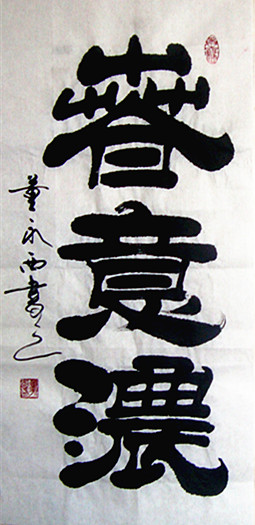 春意濃
董永西書之